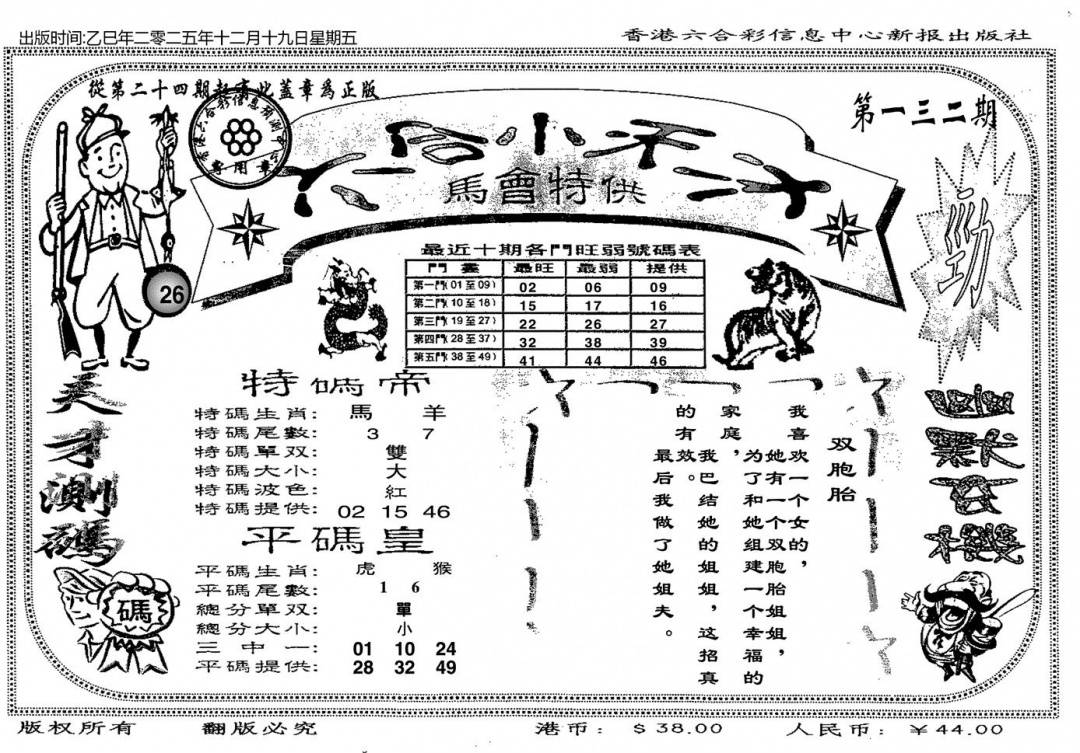 出版时间:乙巳年二零二五年十二月十九日星期五
香港六合彩信息中心新报出版社
從第二十四期起有此蓋章爲正版
第一三二期
專用章
馬會特供
勁
26
最近十期各門旺弱號碼表
門 最旺 最弱 提供
第一門(01至09) 02 06 09
第二門(10至18) 15 17 16
第三門(19至27) 22 26 27
第四門(28至37) 32 38 39
第五門(38至49) 41 44 46
天才測碼
碼
特碼帝
特碼生肖: 馬 羊
特碼尾數: 3 7
特碼單双: 雙
特碼大小: 大
特碼波色: 紅
特碼提供: 02 15 46
平碼皇
平碼生肖: 虎 猴
平碼尾數: 1 6
總分單双: 單
總分大小: 小
三中一: 01 10 24
平碼提供: 28 32 49
双胞胎
我喜欢一个女的,
她有一个双胞胎姐姐,
为了和她组建一个幸福的
家庭,
我巴结她的姐姐,这招真
的有效。
最后我做了她姐夫。
幽默玄機
版权所有 翻版必究 港币: $38.00 人民币: ¥44.00